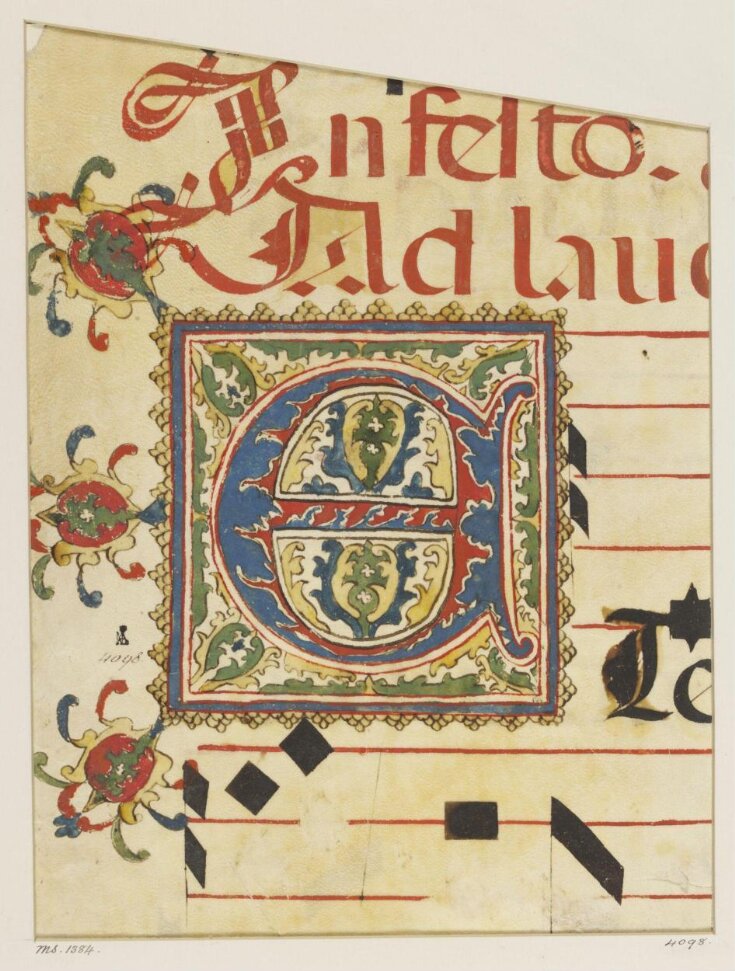 In festo.
Ad lau
E
Te
4098
MS. 1384.
4098.